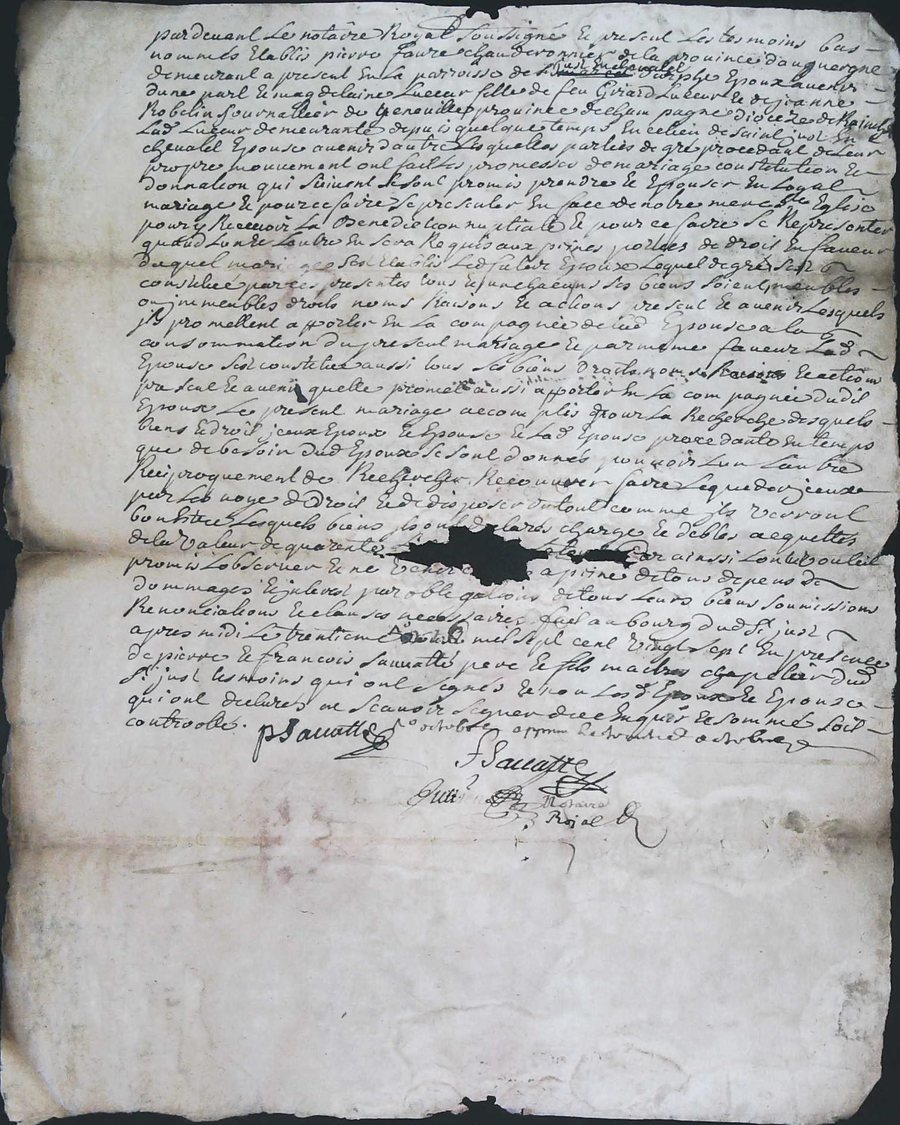 pardevant Le notaire Royal soussigné Et present Les tesmoins bas-
nommés Etablis pierre faure chauderonnier de la province dauvergne
demeurant a present En La parroisse de st just En chevalet Epoux avenir
dune part Et magdelaine Lueur fille de feu Girard Lueur Et de jeanne
Robelin journallier de province de champagne diocèze de Rains
Lad Lueur demeurante depuis quelque temps En ce lieu de saint just En
chevalet Epouse avenir dautre Lesquelles parties de gre procedant de Leur
propre mouvement ont fait Les promesses de mariage constitution Et
donnation qui suivent se sont promis prendre Et Epouser En Loyal
mariage Et pour ce faire se presenter En face de notre mere ste Eglise
pour y Recevoir La Benediction nuptiale Et pour ce faire se Representer
quand Lun Et Lautre En sera Requis aux peines portées de droit En faveur
duquel mariage sest Etablis Led futur Epoux Loquel de gre sest
constitué par ces presentes tous Et un chacuns ses biens soient meubles
ou immeubles droits noms Raisons Et actions present Et avenir Lesquels
jl promettent apporter En La compagnée de lad Epouse a la
consommation du present mariage Et par meme faveur Lad
Epouse sest constituée aussi tous ses biens droits noms Raisons Et actions
present Et avenir quelle promet aussi apporter En La compagnée dudit
Epoux Le present mariage accomplis Et pour La Recherche desquels
biens Et droit jceux Epoux Et Epouse Et Lad Epouse procedante En temps
que de besoin dud Epoux se sont donnés pouvoir Lun Lautre
Reciproquement de Rechercher Recouvrer faire Lequider jceux
par Les voye de droit Et de disposer du tout comme jls verront
bon Estre Lesquels biens jls ont declarés charge Et debtes acquittes
de la valeur de quarente Car ainsi Lont voulu
promis Lobserver Et ne a peine de tous depens
dommages Et interest par obligations de tous Leurs biens soumissions
Renonciations Et clauses necessaires fait au bourg dud st just
apres midi Le trentieme mil sept cent vingt sept En presence
de pierre Et francois sauvatte pere Et fils maitres chapelier dud
st just tesmoins qui ont signés Et non Les Epoux Et Epouse
qui ont declarés ne scavoir signer de ce Enquis Et sommés soit
controollé.
pSauvatte octobre
fSauvatte
Notaire
Roial